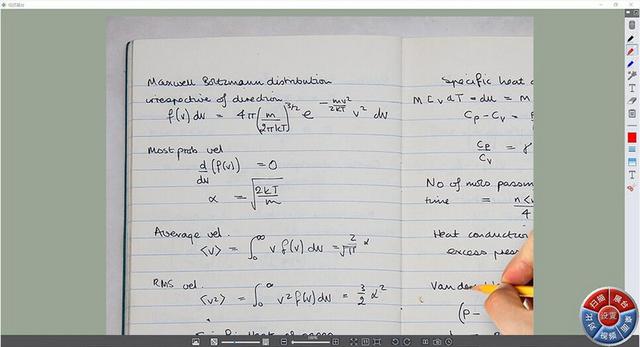 Maxwell Boltzmann distribution
irrespective of direction
f(v) dv = 4π(m/2πkT)^3/2 e^-mv²/2kT v² dv
Most prob vel
d/dv (f(v)) = 0
α = √2kT/m
Average vel.
<v> = ∫₀^∞ v f(v) dv = 2/√π α
RMS vel.
<v²> = ∫₀^∞ v² f(v) dv = 3/2 α²
Specific heat
m Cv dT = du = m
Cp - Cv =
Cp/Cv = γ
No of mols passing
time = n<v/4
Heat conduction
excess pres
Van der
(P -
扫描
展台
设置
视频
对比